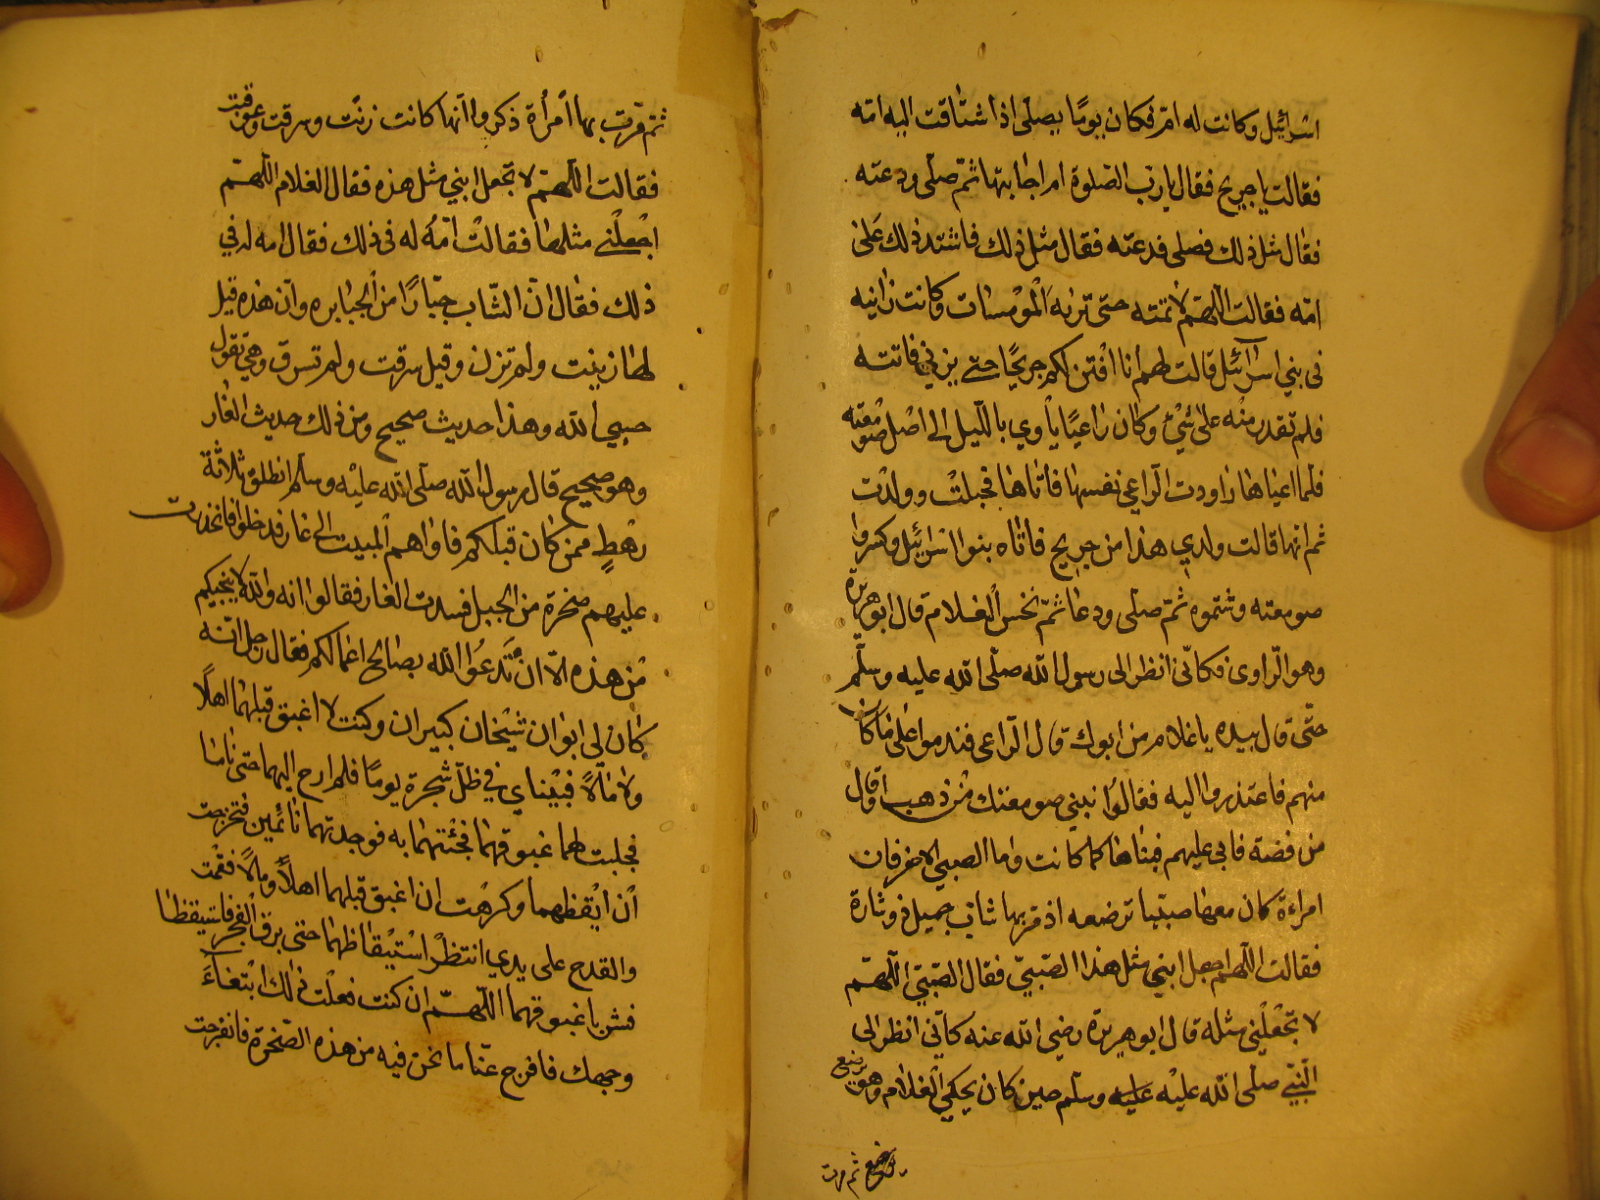 اسرائيل وكانت له ام فكان يومًا يصلى اذا شتاقت اليه امه
فقالت يا جريج فقال يا رب الصلوة ام اجابتها ثم صلى ودعته
فقال مثل ذلك فصلى فدعته فقال مثل ذلك فاشتد ذلك على
امه فقالت اللهم لا تمته حتى تريه المومسات وكانت زانيه
فى بنى اسرآئيل قالت لهم انا افتن لكم جريجًا حتى يزنى فاتته
فلم تقدر منه على شئ وكان راعيًا يأوي بالليل الى اصل صومعته
فلما اعياها راودت الراعي نفسها فأتاها فحبلت وولدت
ثم انها قالت ولدي هذا من جريج فاتاه بنوا اسرائيل وكسروا
صومعته وشتموه ثم صلى ودعا ثم نخس الغلام قال ابو هريرة
وهو الراوى فكانى انظر الى رسول الله صلى الله عليه وسلم
حتى قال بيده يا غلام من ابوك قال الراعى فندموا على ما كان
منهم فاعتذروا اليه فقالوا نبنى صومعتك من ذهب او قال
من فضة فابى عليهم فبناها كما كانت واما الصبى الاخر فان
امراءة كان معها صبيا ترضعه اذ مر بها شاب جميل ذو شارة
فقالت اللهم اجعل ابنى مثل هذا الصبي فقال الصبي اللهم
لا تجعلنى مثله قال ابو هريرة رضى الله عنه كاني انظر الى
النبي صلى الله عليه عليه وسلم حين كان يحكي الغلام وهو يرضع
يرضع ثم مرت
ثم مرت بها امرأة ذكروا انها كانت زنت وسرقت وعوقبت
فقالت اللهم لا تجعل ابني مثل هذه فقال الغلام اللهم
اجعلنى مثلها فقالت امه له فى ذلك فقال امه له في
ذلك فقال ان الشاب جبارًا من الجبابره وان هذه قيل
لها زنيت ولم تزن وقيل سرقت ولم تسرق وهي تقول
حسبي الله وهذا حديث صحيح ومن ذلك حديث الغار
وهو صحيح قال رسول الله صلى الله عليه وسلم انطلق ثلاثة
رهطٍ ممن كان قبلكم فاواهم المبيت الى غار فدخلوا فانحدرت
عليهم صخرة من الجبل فسدت الغار فقالوا انه والله لا ينجيكم
من هذه الا ان تدعوا الله بصالح اعمالكم فقال رجل انه
كان لى ابوان شيخان كبيران وكنت لا اغبق قبلهما اهلًا
ولا مالًا فبيناي في ظل شجرة يومًا فلم ارح اليهما حتى ناما
فجلبت لهما غبوقهما فجئتهما به فوجدتهما نائمين فتحرجت
ان ايقظهما وكرهت ان اغبق قبلهما اهلًا ومالًا فقمت
والقدح على يدي انتظر استيقاظهما حتى برق الفجر فاستيقظا
فشربا غبوقهما اللهم ان كنت فعلت ذلك ابتغاء
وجهك فافرج عنا ما نحن فيه من هذه الصخرة فانفرجت